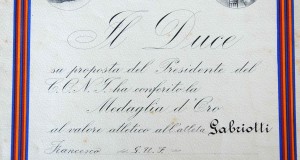 Il Duce
su proposta del Presidente del
C.O.N.I. ha conferito la
Medaglia d'Oro
al valore atletico all'atleta Gabriotti
Francesco G.U.F.